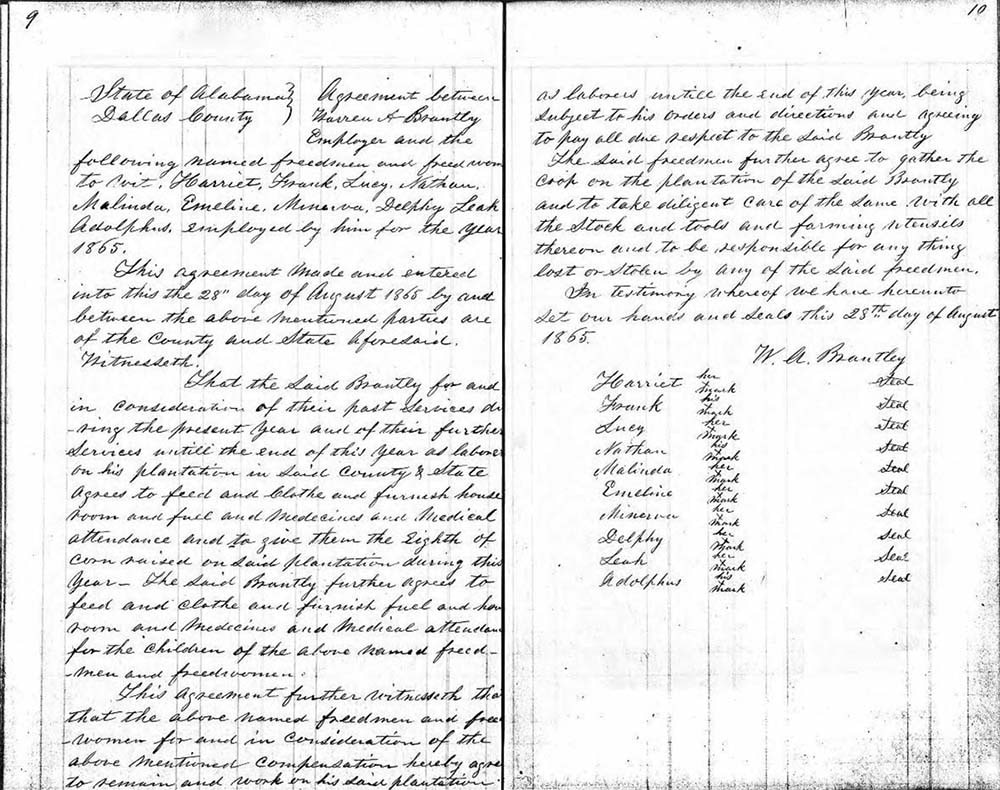 9
State of Alabama } Agreement between
Dallas County } Warren A Brantly
Employer and the
following named freedmen and freedwom
to wit, Harriet, Frank, Lucy, Nathan,
Malinda, Emeline, Minerva, Delphy Leah
Adolphus, employed by him for the year
1865.
This agreement made and entered
into this the 28" day of August 1865 by and
between the above mentioned parties are
of the County and State aforesaid.
Witnesseth.
That the said Brantly for and
in consideration of their past services du
-ring the present year and of their further
services untill the end of this year as laborer
on his plantation in said County & State
agrees to feed and clothe and furnish house
room and fuel and medecines and medical
attendance and to give them the Eighth of
corn raised on said plantation during this
year - The said Brantly further agrees to
feed and clothe and furnish fuel and hou
room and medecines and medical attendan
for the children of the above named freed-
-men and freedwomen.
This agreement further witnesseth tha
that the above named freedmen and free
-women for and in consideration of the
above mentioned compensation hereby agre
to remain and work on his said plantation
10
as laborers untill the end of this year, being
subject to his orders and directions and agreeing
to pay all due respect to the said Brantly
The said freedmen further agree to gather the
crop on the plantation of the said Brantly
and to take diligent care of the same with all
the stock and tools and farming utensils
thereon and to be responsible for any thing
lost or stolen by any of the said freedmen.
In testimony whereof we have hereunto
set our hands and seals this 28th day of August
1865.
W. A. Brantley
Harriet her mark Seal
Frank his mark Seal
Lucy her mark Seal
Nathan his mark Seal
Malinda her mark Seal
Emeline her mark Seal
Minerva her mark Seal
Delphy her mark Seal
Leah her mark Seal
Adolphus his mark Seal